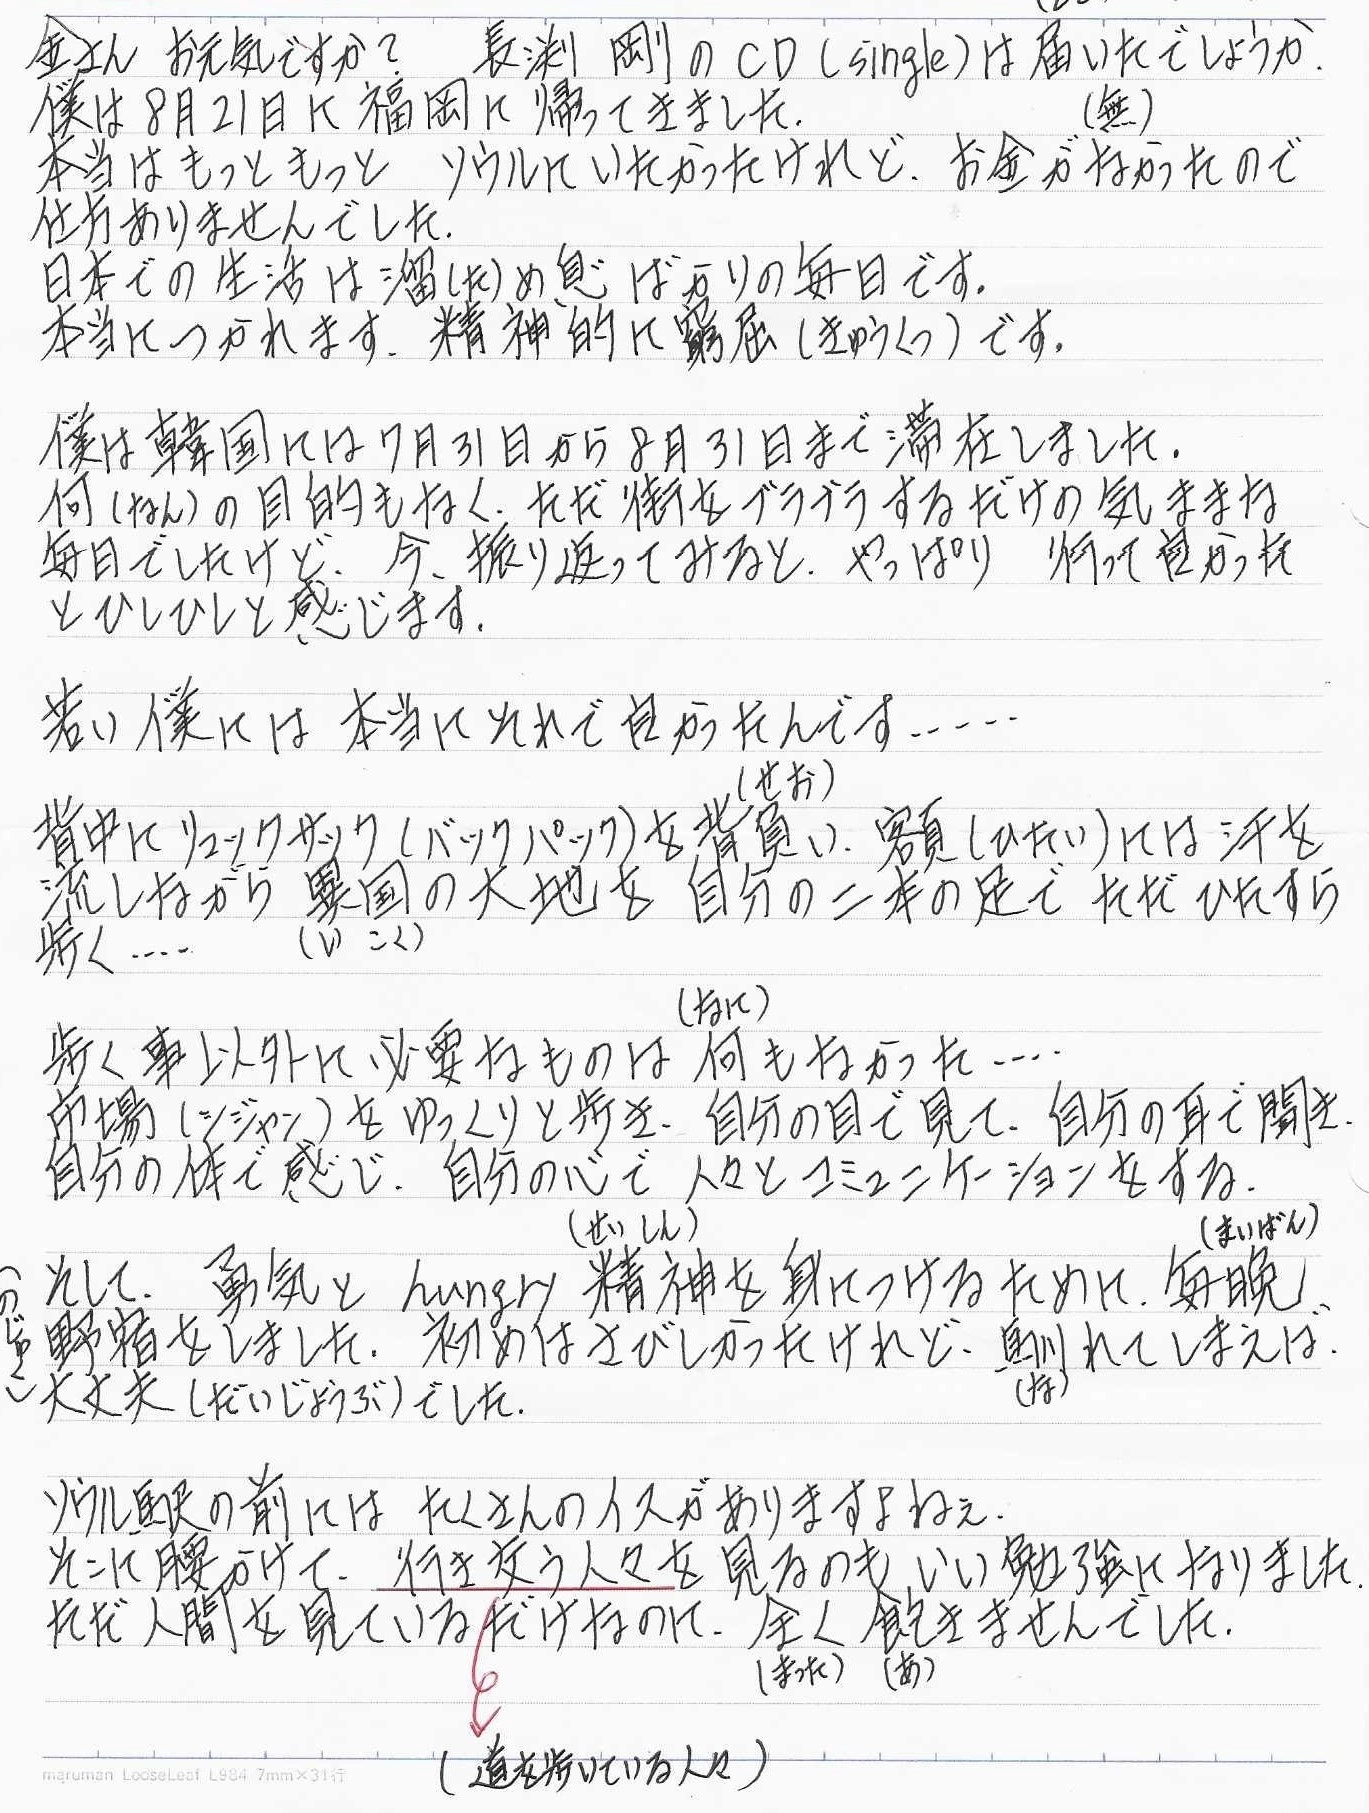 金さん お元気ですか? 長渕 剛のCD(single)は届いたでしょうか.
僕は8月21日に福岡に帰ってきました.
(無)
本当はもっともっと ソウルにいたかったけれど、お金がなかったので
仕方ありませんでした.
日本での生活は溜(た)め息ばかりの毎日です.
本当につかれます. 精神的に窮屈(きゅうくつ)です.
僕は韓国には7月31日から8月31日まで滞在しました.
何(なん)の目的もなく、ただ街をブラブラするだけの気ままな
毎日でしたけど、今、振り返ってみると、やっぱり 行って良かった
とひしひしと感じます.
若い僕には本当にそれで良かったんです.....
(せお)
背中にリュックサック(バックパック)を背負い、額(ひたい)には汗を
流しながら異国の大地を自分の二本の足でただひたすら
歩く....
(い こく)
(なに)
歩く事以外に必要なものは何もなかった....
市場(シジャン)をゆっくりと歩き、自分の目で見て、自分の耳で聞き、
自分の体で感じ、自分の心で人々とコミュニケーションをする.
(せい しん)
(まいばん)
そして、勇気とhungry精神を身につけるために、毎晩
(のじゅく)
野宿をしました. 初めはさびしかったけれど、馴れてしまえば、
(な)
大丈夫(だいじょうぶ)でした.
ソウル駅の前にはたくさんのイスがありますよねぇ.
そこに腰かけて、行き交う人々を見るのもいい勉強になりました.
ただ人間を見ているだけなのに、全く飽きませんでした.
(まった) (あ)
(道を歩いている人々)
maruman LooseLeaf L984 7mm×31行